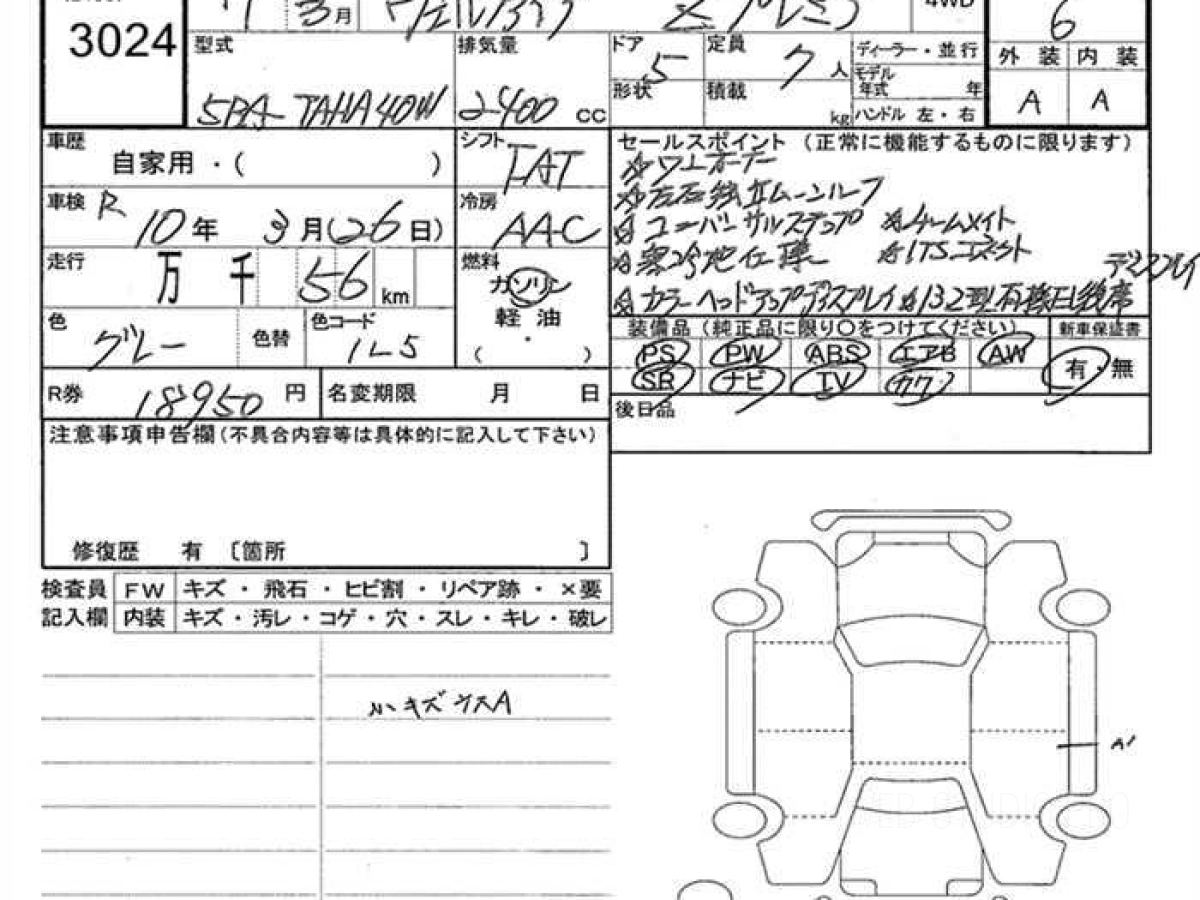 7 3月 アルファード Z プレミア 4WD
3024
6
型式 5BA-TAHA40W
排気量 2400 cc
ドア 5
定員 7人
形状
積載 kg
ディーラー・並行
モデル年式 年
ハンドル 左・右
外装 内装
A A
車歴 自家用・( )
シフト FAT
車検 R 10年 3月(26日)
冷房 AAC
走行 万 千 56 km
燃料 ガソリン
軽油
( ・ )
色 グレー 色替
色コード 1L5
R券 18950 円
名変期限 月 日
セールスポイント(正常に機能するものに限ります)
☆ワンオーナー
☆左右独立ムーンルーフ
☆ユニバーサルステップ ☆チームメイト
☆寒冷地仕様 ☆ITSコネクト
☆カラーヘッドアップディスプレイ ☆13.2型有機EL後席
ディスプレイ
装備品(純正品に限り〇をつけてください)
新車保証書
PS PW ABS エアB AW
SR ナビ TV カワ
有・無
後日品
注意事項申告欄(不具合内容等は具体的に記入して下さい)
修復歴 有 〔箇所 〕
検査員 FW キズ・飛石・ヒビ割・リペア跡・×要
記入欄 内装 キズ・汚レ・コゲ・穴・スレ・キレ・破レ
小キズ ウスA
A1